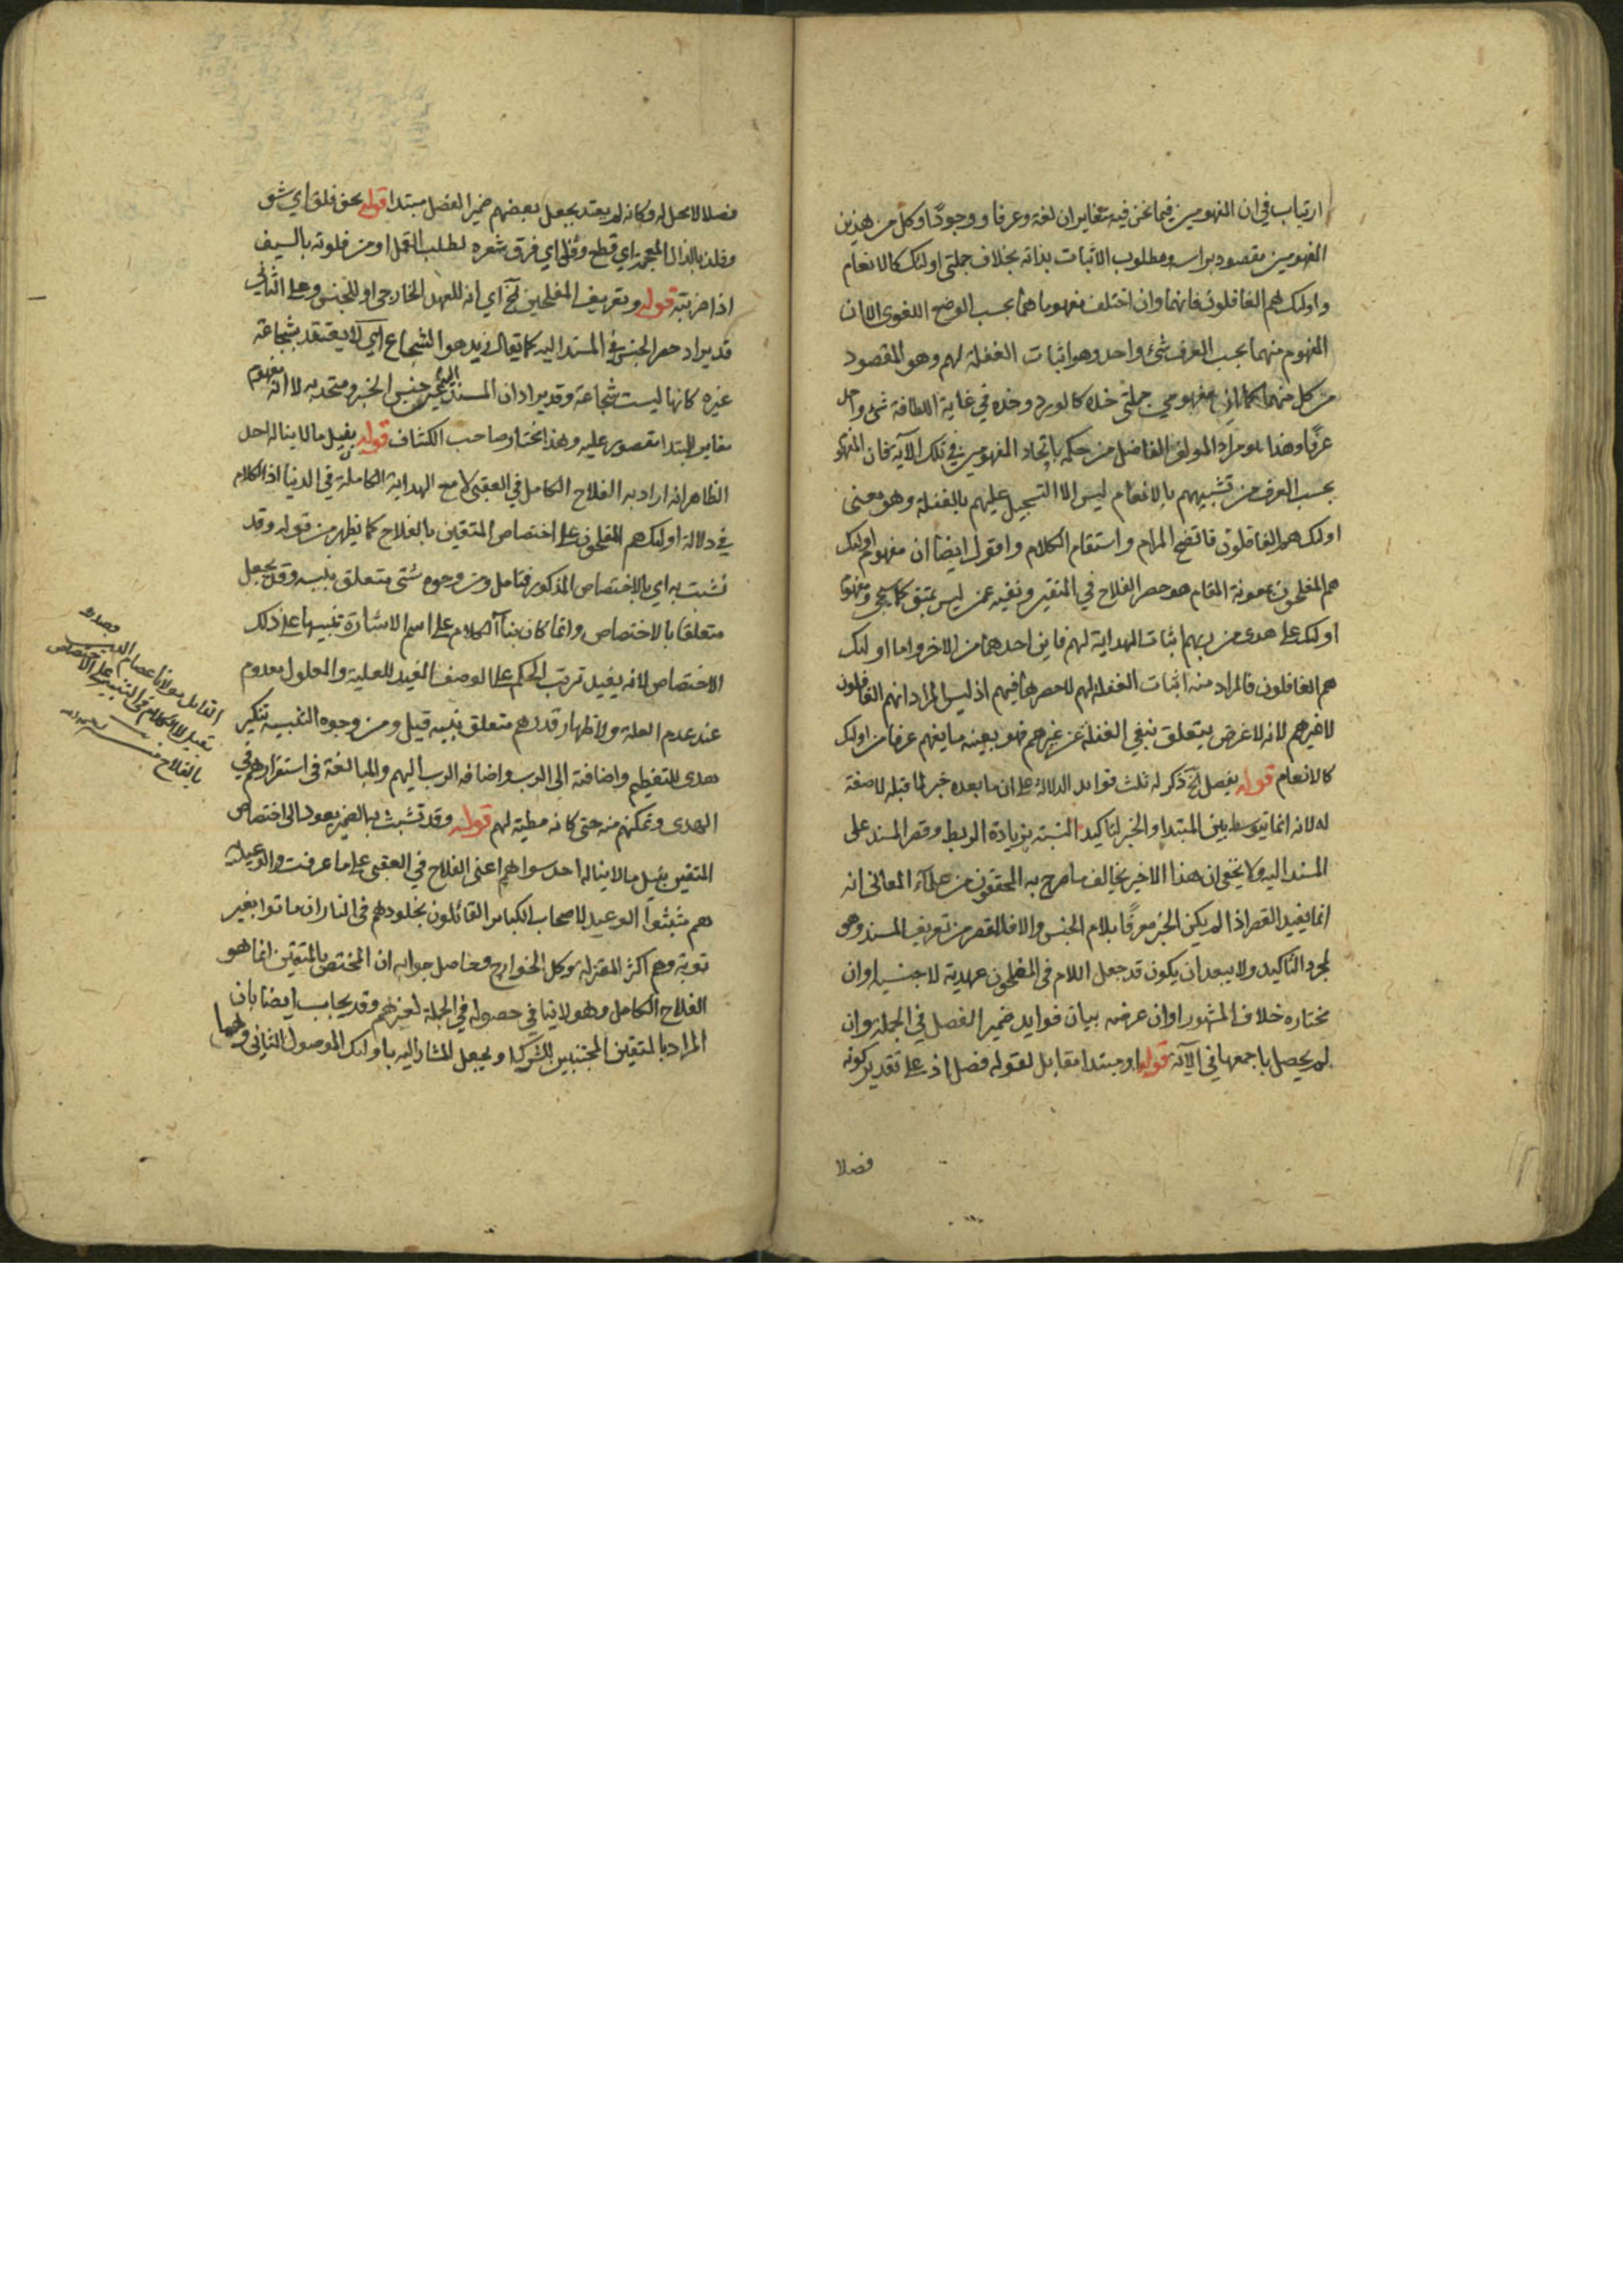 ارتياب في ان المفهومين فيما نحن فيه متغايران لغة وعرفا ووجودًا وكل من هذين
المفهومين مقصود براسه ومطلوب الاثبات بذاته بخلاف جملتى اولئك كالانعام
واولئك هم الغافلون فانهما وان اختلف مفهوماهما بحسب الوضع اللغوى الا ان
المفهوم منهما بحسب العرف شئ واحد وهو اثبات الغفلة لهم وهو المقصود
من كل منهما كما ان مفهومي جملتى خده كالورد وخده في غاية اللطافة شئ واحد
عرفًا وهذا هو مراد المولف الفاضل من حكمه باتحاد المفهومين في تلك الآية فان المفهوم
بحسب العرف من تشبيههم بالانعام ليس الا التسجيل عليهم بالغفلة وهو معنى
اولئك هم الغافلون فاتضح المرام واستقام الكلام واقول ايضا ان مفهوم اولئك
هم المفلحون بمعونة المقام هو حصر الفلاح في المتقين ونفيه عمن ليس بمتق كما سيجئ ومفهوم
اولئك على هدى من ربهم اثبات الهداية لهم فاين احدهما من الاخر واما اولئك
هم الغافلون فالمراد منه اثبات الغفلة لهم لا حصرها فيهم اذ ليس المراد انهم الغافلون
لا غيرهم لانه لا غرض يتعلق بنفي الغفلة عن غيرهم فهو بعينه ما يفهم عرفا من اولئك
كالانعام قوله يفصل الخ ذكر له ثلث فوايد الدلالة على ان ما بعده خبر لما قبله لا صفة
له لانه انما يتوسط بين المبتدا والخبر لتاكيد النسبة بزيادة الربط وقصر المسند على
المسند اليه ولا يخفى ان هذا الاخير يخالف ما صرح به المحققون من علماء المعانى انه
انما يفيد القصر اذا لم يكن الخبر معرفًا بلام الجنس والا فالقصر من تعريف المسند وهو
لمجرد التاكيد ولا يبعد ان يكون قد جعل اللام في المفلحون عهدية لا جنسية وان
مختاره خلاف المشهور او ان غرضه بيان فوايد ضمير الفصل في الجملة وان
لم يحصل باجمعها في الآية قوله او مبتدا مقابل لقوله فصل اذ على تقدير كونه
فصلا
فصلا لا محل له وكانه لم يعتد بجعل بعضهم ضمير الفصل مبتدا قوله نحو فلق اي شق
وفلذ بالذال المعجمة اي قطع وفلى اي فرق شعره لطلب القمل او من فلوته بالسيف
اذا ضربته قوله وتعريف المفلحين الخ اي انه للعهد الخارجى او للجنس وعلى الثانى
قد يراد حصر الجنس في المسند اليه كما يقال زيد هو الشجاع اي لا يعتقد بشجاعة
غيره كانها ليست شجاعة وقد يراد ان المسند اليه عين جنس الخبر ومتحد به لا انه مفهوم
مغاير للمبتدا مقصور عليه وهذا مختار صاحب الكشاف قوله بنيل ما لا يناله احد
الظاهر انه اراد به الفلاح الكامل في العقبى لا مع الهداية الكاملة في الدنيا اذ الكلام
في دلالة اولئك هم المفلحون على اختصاص المتقين بالفلاح كما يظهر من قوله وقد
تشبث به اي بالاختصاص المذكور فتامل ومن وجوه شتى متعلق بنبه وقد يجعل
متعلقا بالاختصاص وانما كان بناء الكلام على اسم الاشارة تنبيها على ذلك
الاختصاص لانه يفيد ترتب الحكم على الوصف المفيد للعلية والمعلول معدوم
عند عدم العلة ولاظهار قدرهم متعلق بنبه قيل ومن وجوه التنبيه تنكير
هدى للتعظيم واضافته الى الرب واضافة الرب اليهم والمبالغة في استقرارهم في
الهدى وتمكنهم منه حتى كانه مطية لهم قوله وقد تشبث به الضمير يعود الى اختصاص
المتقين بنيل ما لا يناله احد سواهم اعنى الفلاح في العقبى على ما عرفت والوعيدية
هم مثبتوا الوعيد لاصحاب الكبائر القائلون بخلودهم في النار ان ماتوا بغير
توبة وهم اكثر المعتزلة وكل الخوارج وحاصل جوابه ان المختص بالمتقين انما هو
الفلاح الكامل وهو لا ينافي حصوله في الجملة لغيرهم وقد يجاب ايضا بان
المراد بالمتقين المجتنبين للشرك او يجعل المشار اليه باولئك الموصول الثانى
القائل مولانا عصام الدين
بالفلاح منه